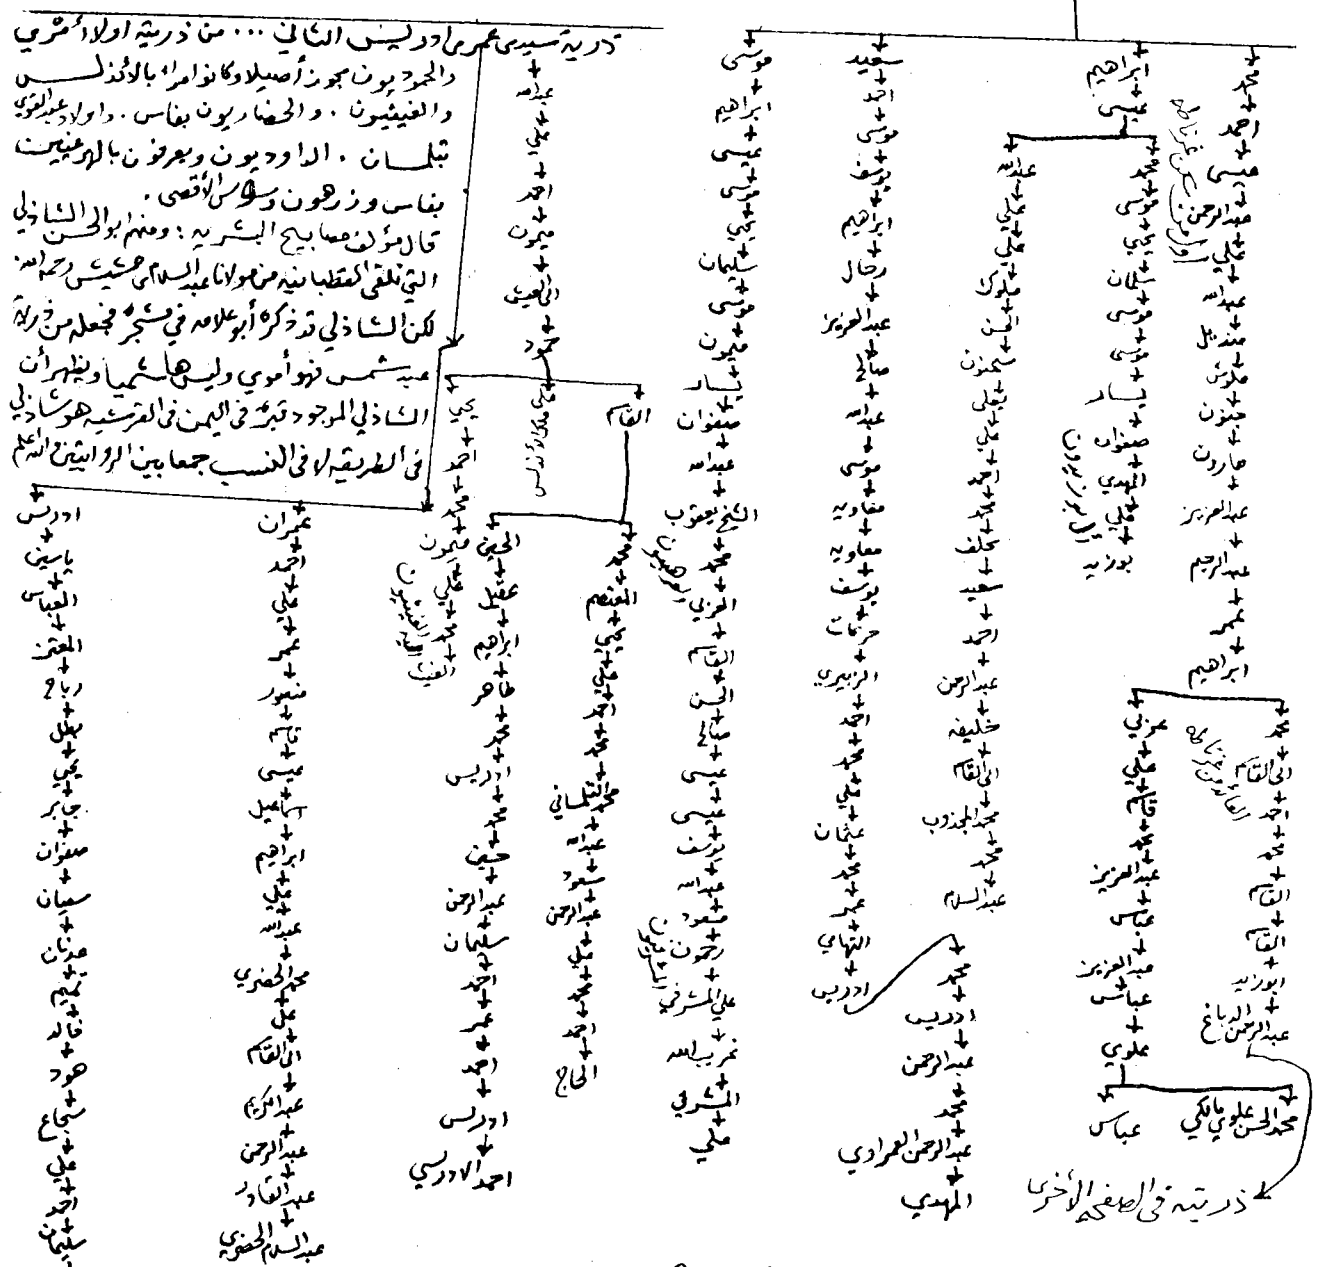 ذرية سيدي عمر بن ادريس الثاني ... من ذريته اولاد أمثري
والحموديون بحوز أصيلا وكانوا امراء بالأندلس
والغيثيون . والحضاريون بفاس . واولاد عبد القوي
بتلمسان . الداوديون ويعرفون بالهرغيين
بفاس وزرهون وسوس الأقصى .
قال مؤلف مصابيح البشرية : ومنهم ابو الحسن الشاذلي
التي تلقى القطبانيه من مولانا عبد السلام بن مشيش رحمه الله
لكن الشاذلي قد ذكره أبو علامه في مشجره فجعله من ذرية
عبد شمس فهو أموي وليس هاشميا ويظهر أن
الشاذلي الموجود قبره في اليمن في القرشيه هو شاذلي
في الطريقه لا في النسب جمعا بين الروايتين والله اعلم
محمد
احمد
عيسى
عبد الرحمن
علي
عبد الله
منديل
علوش
ميمون
هارون
عبد العزيز
عبد الرحيم
عمر
ابراهيم
اول من سكن غرناطه
محمد
ابي القاسم
احمد
محمد
القاسم
القاسم
ابو زيد
عبد الرحمن الدباغ
ذريته في الصفحه الأخرى
علي
قاسم
محمد
عبد العزيز
عباس
عبد العزيز
عباس
علوي
محمد الحسن علوي مالكي
عباس
ابراهيم
عيسى
محمد
موسى
علي
سلمان
موسى
موسى
يسار
صفوان
المهدي
علي
بوزيد
عبد الله
علي
علي
ملوك
ميمون
علي
محمد
مخلف
سعيد
احمد
عبد الرحمن
خليفه
ابي القاسم
محمد المجذوب
محمد
عبد السلام
سعيد
احمد
موسى
يوسف
ابراهيم
رحال
عبد العزيز
صالح
عبد الله
موسى
معاويه
معاويه
يوسف
عرفات
الزبيري
احمد
محمد
علي
عثمان
محمد
عمر
التهامي
ادريس
محمد
ادريس
عبد الرحمن
محمد
عبد الرحمن العمراوي
المهدي
موسى
ابراهيم
عيسى
موسى
علي
سليمان
موسى
ميمون
يسار
صفوان
عبد الله
الشيخ يعقوب
محمد
العربي
القاسم
الياس
صالح
عيسى
عيسى
يوسف
عبد الله
مسعود
رحمون
علي المشرفي
غريب الله
المشرفي
علي
عبد الله
علي
احمد
ميمون
ابي العيش
محمد
القاسم
علي ملك الأندلس
يحيى
احمد
محمد
ميمون
علي
محمد
محمد
المعتصم
علي
علي
محمد
محمد
محمد التلمساني
عبد الله
مسعود
عبد الرحمن
علي
محمد
احمد
الحاج
الحسن
عقيل
ابراهيم
طاهر
محمد
ادريس
محمد
حسين
عبد الرحمن
سليمان
احمد
عمر
احمد
ادريس
احمد الادريسي
عمران
احمد
علي
عمر
منصور
قاسم
عيسى
اسماعيل
ابراهيم
علي
عبد الله
محمد الحضري
علي
ابي القاسم
عبد الكريم
عبد الرحمن
عبد القادر
عبد السلام الحضري
ادريس
ياسين
العباس
المعتز
رباح
يحيى
جابر
صفوان
سفيان
عدنان
خالد
هود
شجاع
علي
احمد
سليمان